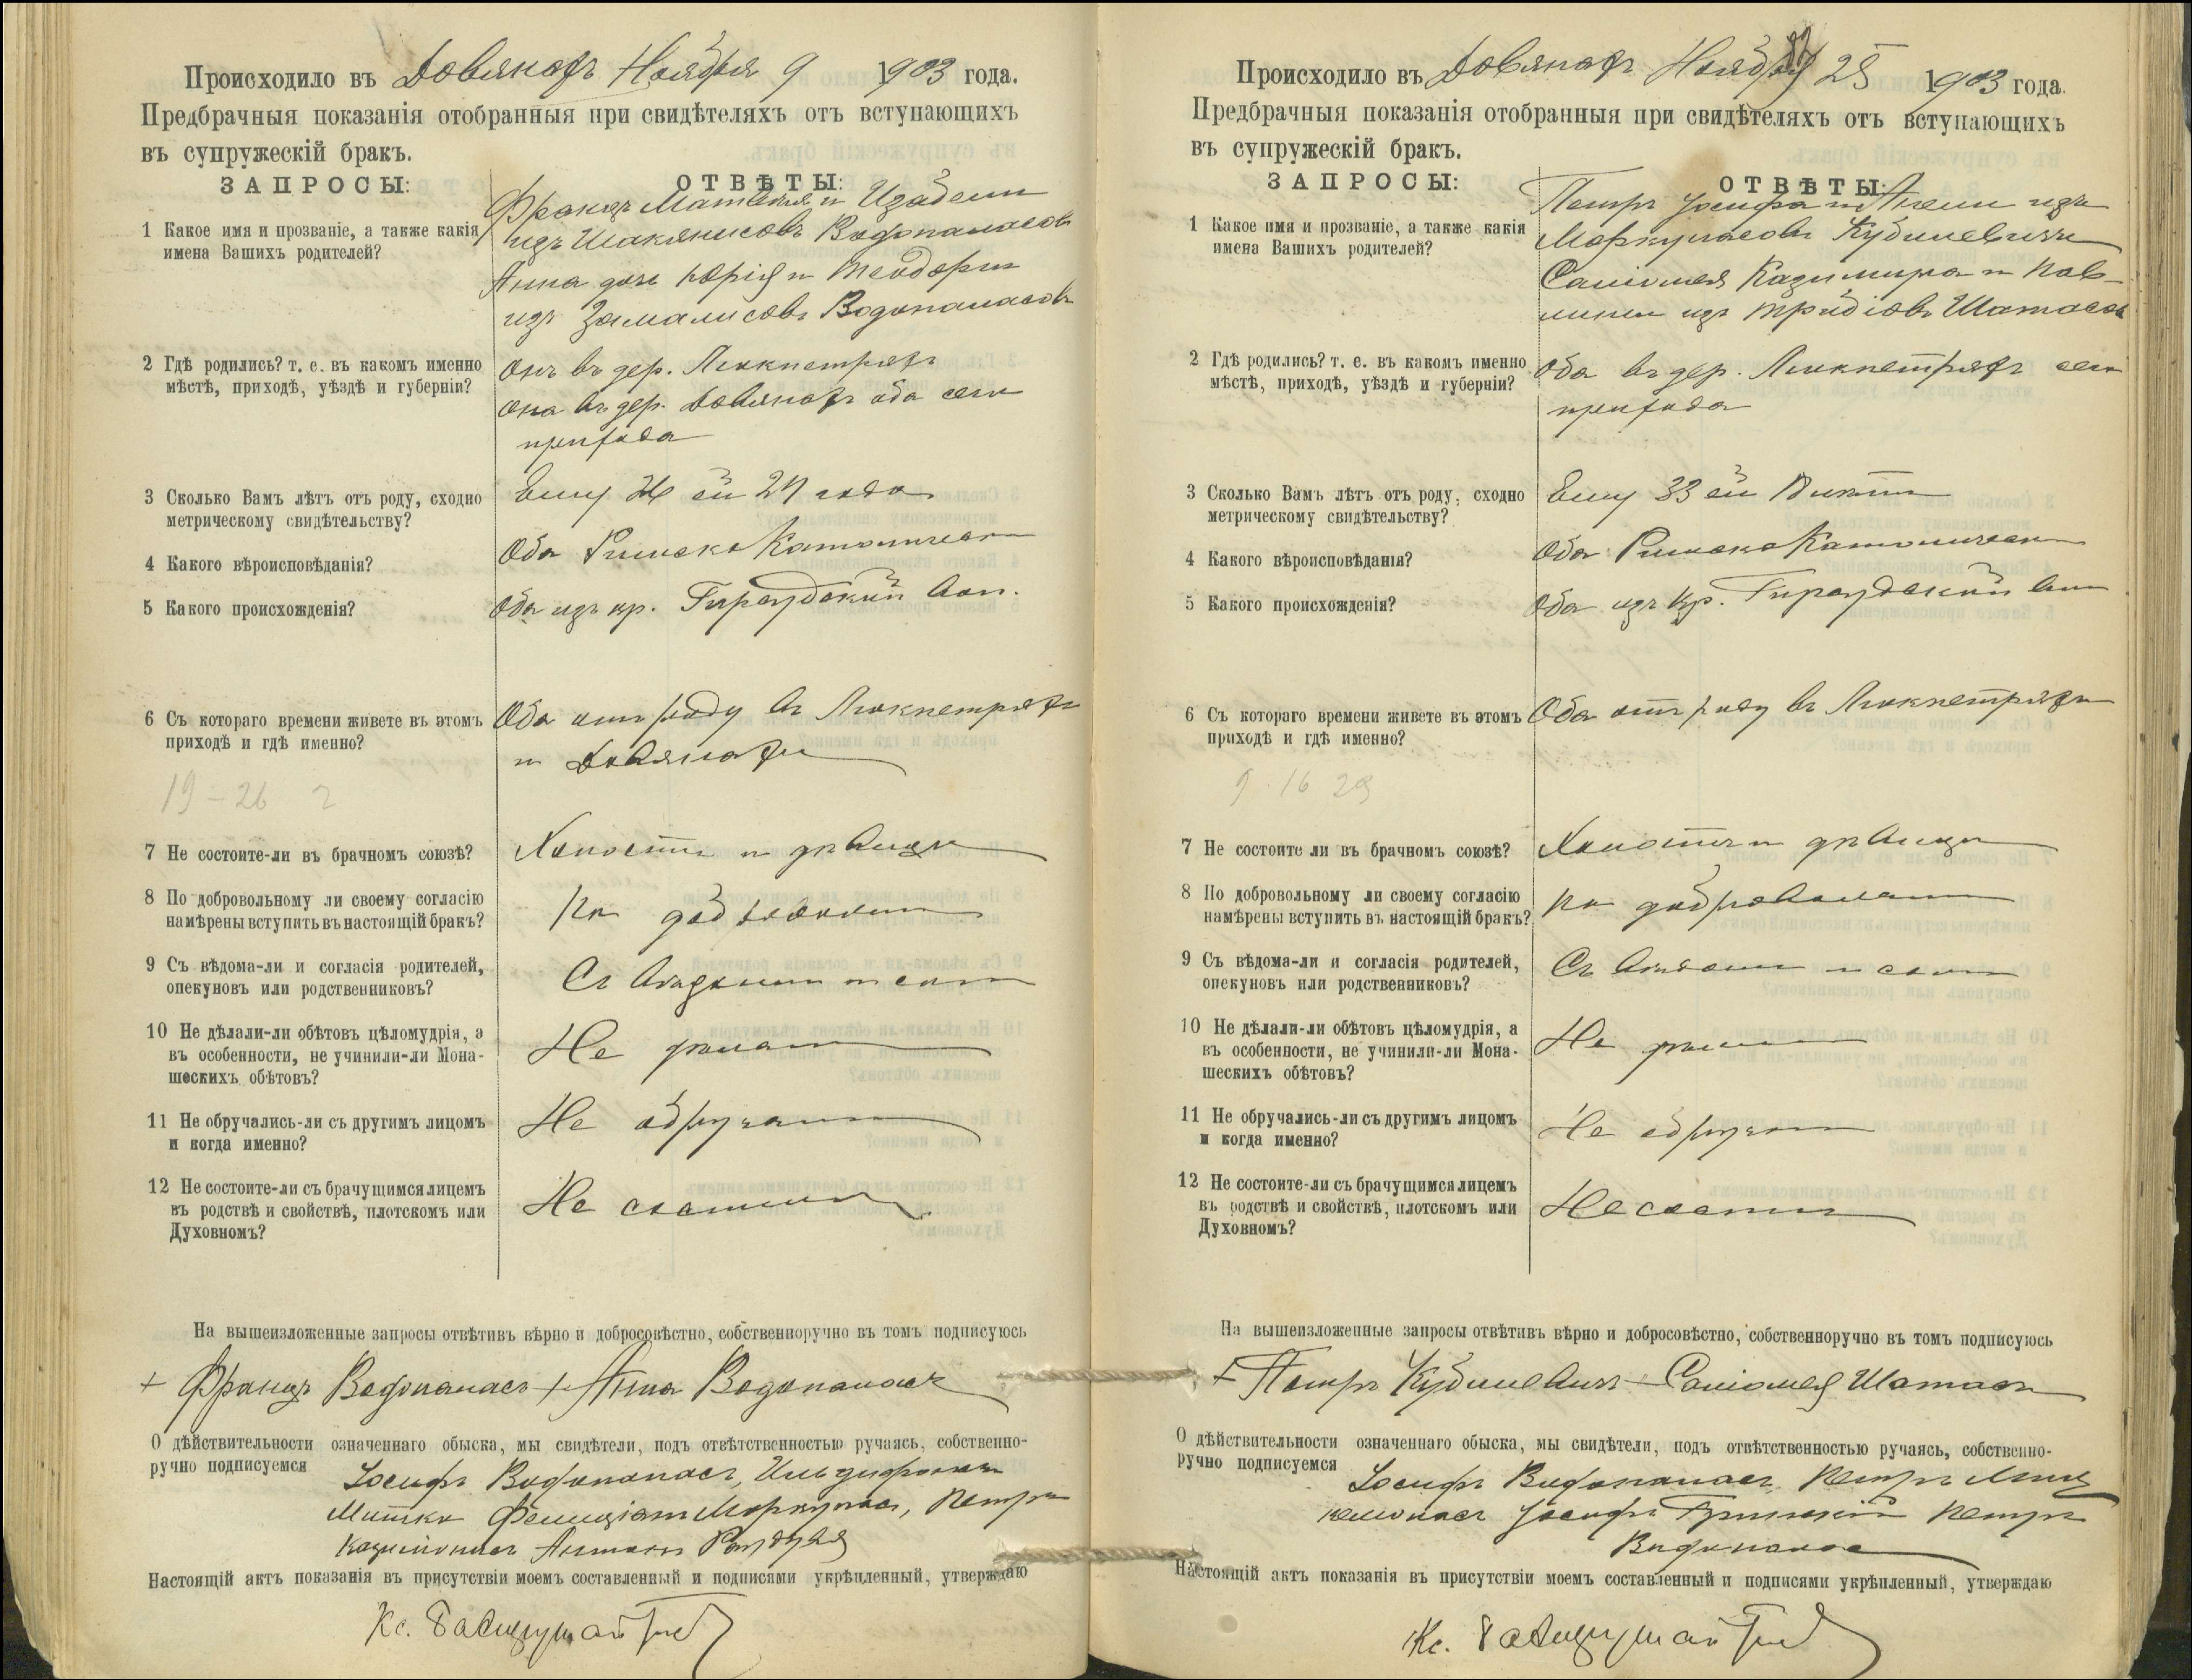 Происходило въ Довянахъ Ноября 9 1903 года.
Предбрачныя показанія отобранныя при свидѣтеляхъ отъ вступающихъ
въ супружескій бракъ.
ЗАПРОСЫ:
ОТВѢТЫ:
1 Какое имя и прозваніе, а также какія
имена Вашихъ родителей?
Францъ Матвѣя и Изабели
изъ Водопаласовъ
Анна дочь Юрія и Теодоры
изъ Водопаласовъ
2 Гдѣ родились? т. е. въ какомъ именно
мѣстѣ, приходѣ, уѣздѣ и губерніи?
Онъ въ дер. Люкпетряхъ
она въ дер. Довянахъ оба сего
прихода
3 Сколько Вамъ лѣтъ отъ роду, сходно
метрическому свидѣтельству?
Ему ей года
4 Какого вѣроисповѣданія?
Оба Римско Католическ
5 Какого происхожденія?
Оба изъ кр. Гирсудской Вол.
6 Съ котораго времени живете въ этомъ
приходѣ и гдѣ именно?
Оба отъ роду въ Люкпетряхъ
и Довянахъ
19 - 26 2
7 Не состоите-ли въ брачномъ союзѣ?
Холостъ и дѣвица
8 По добровольному ли своему согласію
намѣрены вступить въ настоящій бракъ?
По
9 Съ вѣдома-ли и согласія родителей,
опекуновъ или родственниковъ?
Съ и согл
10 Не дѣлали-ли обѣтовъ цѣломудрія, а
въ особенности, не учинили-ли Мона-
шескихъ обѣтовъ?
Не дѣлали
11 Не обручались-ли съ другимъ лицомъ
и когда именно?
Не обручали
12 Не состоите-ли съ брачущимся лицемъ
въ родствѣ и свойствѣ, плотскомъ или
Духовномъ?
Не состоим
На вышеизложенные запросы отвѣтивъ вѣрно и добросовѣстно, собственноручно въ томъ подписуюсь
+ Францъ Водопаласъ + Анна Водопаласъ
О дѣйствительности означеннаго обыска, мы свидѣтели, подъ отвѣтственностью ручаясь, собственно-
ручно подписуемся
Іосифъ Водопаласъ,
Митко Моркунас, Петръ
Антонъ
Настоящій актъ показанія въ присутствіи моемъ составленный и подписями укрѣпленный, утверждаю
Кс.
Происходило въ Довянахъ Ноября 23 1903 года.
Предбрачныя показанія отобранныя при свидѣтеляхъ отъ вступающихъ
въ супружескій бракъ.
ЗАПРОСЫ:
ОТВѢТЫ:
1 Какое имя и прозваніе, а также какія
имена Вашихъ родителей?
Петръ Іосифа и изъ
Моркунасовъ Кубилевичъ
Саломея Казимира и Пав-
лины изъ Шатасъ
2 Гдѣ родились? т. е. въ какомъ именно
мѣстѣ, приходѣ, уѣздѣ и губерніи?
Оба въ дер. Люкпетряхъ сего
прихода
3 Сколько Вамъ лѣтъ отъ роду, сходно
метрическому свидѣтельству?
Ему 33 ей
4 Какого вѣроисповѣданія?
Оба Римско Католическ
5 Какого происхожденія?
Оба изъ кр. Гирсудской Вол
6 Съ котораго времени живете въ этомъ
приходѣ и гдѣ именно?
Оба отъ роду въ Люкпетряхъ
9 16 23
7 Не состоите ли въ брачномъ союзѣ?
Холостъ и дѣвица
8 По добровольному ли своему согласію
намѣрены вступить въ настоящій бракъ?
По добровольн
9 Съ вѣдома-ли и согласія родителей,
опекуновъ или родственниковъ?
Съ и согл
10 Не дѣлали-ли обѣтовъ цѣломудрія, а
въ особенности, не учинили-ли Мона-
шескихъ обѣтовъ?
Не дѣл
11 Не обручались-ли съ другимъ лицомъ
и когда именно?
Не обручал
12 Не состоите-ли съ брачущимся лицемъ
въ родствѣ и свойствѣ, плотскомъ или
Духовномъ?
Не состоим
На вышеизложенные запросы отвѣтивъ вѣрно и добросовѣстно, собственноручно въ томъ подписуюсь
+ Петръ Кубилевичъ + Саломея Шатасъ
О дѣйствительности означеннаго обыска, мы свидѣтели, подъ отвѣтственностью ручаясь, собственно-
ручно подписуемся
Іосифъ Водопаласъ, Петръ
Іосифъ Петръ
Водопалас
Настоящій актъ показанія въ присутствіи моемъ составленный и подписями укрѣпленный, утверждаю
Кс.